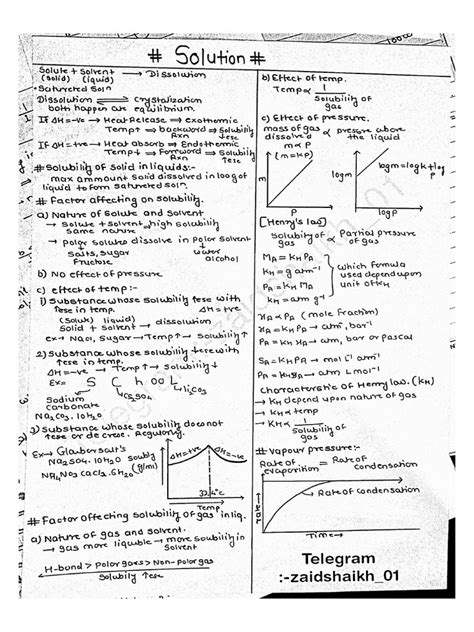 # Solution #
Solute + Solvent → Dissolution
(solid) (liquid)
Saturated Soln
Dissolution ⇌ Crystalization
both happen are equilibrium
If ΔH=-ve → Heat Release ⇒ exothermic
Temp↑ → backward → Solubility
Rxn
If ΔH=+ve → Heat absorb ⇒ Endothermic
Temp↑ → forward → Solubility
Rxn
# Solubility of Solid in liquids:-
max ammount Solid dissolved in 100g of
liquid to form saturated soln.
# Factor affecting on solubility.
a) Nature of Solute and Solvent
→ Solute + Solvent → high solubility
Same nature
→ polar solutes dissolve in polar solvent
salts, sugar
fructose
water
alcohol
b) No effect of pressure
c) effect of temp:-
1) Substance whose solubility ↑ese with
↑ese in temp. ΔH=+ve
(Solute) liquid
Solid + Solvent → dissolution
ex → NaCl, Sugar → Temp↑ → Solubility↑
2) Substance whose solubility ↓ese with
↑ese in temp.
ΔH=-ve → Temp↑ → Solubility↓
Ex= S C h oo L
Li2CO3
Sodium
Carbonate
Na2CO3.10H2O
3) Substance whose solubility does not
↑ese or decrese. Regularly.
Ex → Glauber salt's
Na2SO4.10H2O
CaCl2.6H2O
(g/ml)
ΔH=+ve
ΔH=-ve
32.4°c
Temp
# Factor effecting solubility of gas in liq.
a) Nature of gas and solvent.
→ gas more liquible → more soulbility in
Solvent
H-bond > Polar gases > Non-polar gas
Solubility ↑ese
b) Effect of temp.
Temp ∝ 1
Solubility of
gas
c) Effect of pressure.
mass of gas ∝ pressure above
dissolve's the liquid
m ∝ P
(m = kp)
m
P
logm
logP
logm = logk + logp
[Henry's law]
Solubility of ∝ Partial pressure
gas of gas
MA = KH PA
KH = g atm-1
PA = KH MA
KH = atm g-1
Which formula
used depend upon
unit of KH
xA ∝ PA (mole fraction)
xA = KH PA → atm-1, bar-1
PA = KH xA → atm, bar or Pascal
SA = KH PA → mol L-1 atm-1
PA = KH SA → atm L mol-1
Characteristic of Henry law. (KH)
→ KH depend upon nature of gas
→ KH ∝ temp
→ KH ∝ 1
Solubility of
gas
# vapour pressure:-
Rate of = Rate of
evaporition condensation
→ Rate of Condensation
rate→
Time→
Telegram
:-zaidshaikh_01